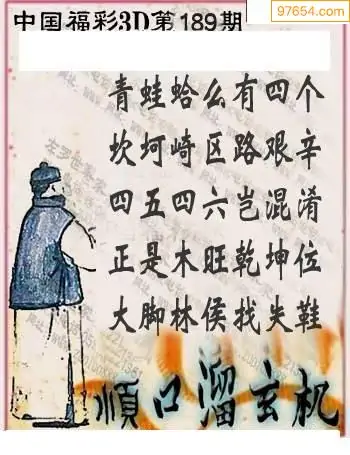 97654.com
中国福彩3D第189期
青蛙蛤么有四个
坎坷崎区路艰辛
四五四六岂混淆
正是木旺乾坤位
大脚林侯找失鞋
順口溜玄机